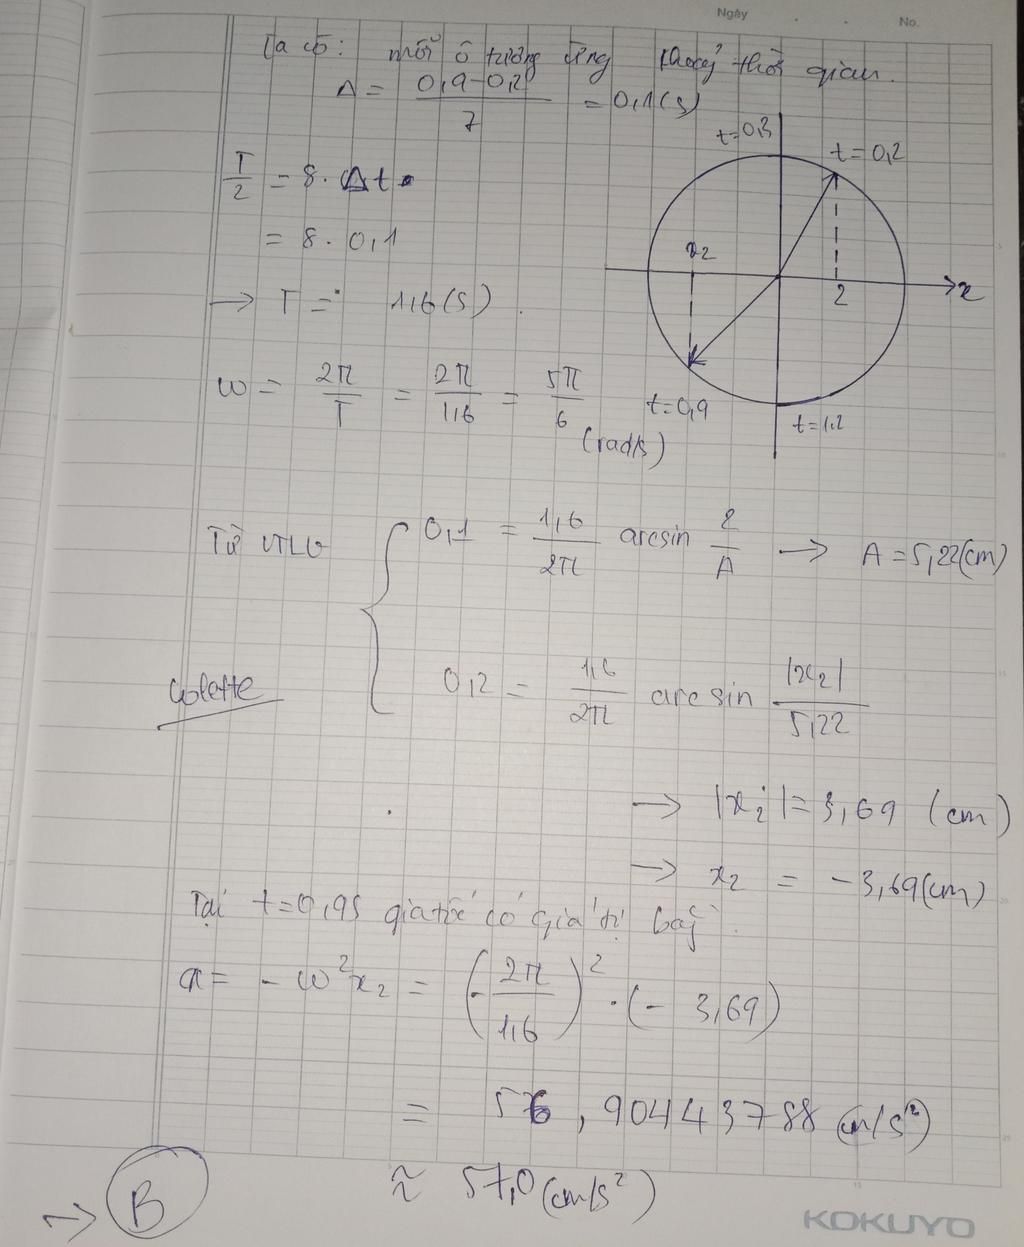 Ngày . . No.
Ta có: mỗi ô tương ứng khoảng thời gian.
Δ = \frac{0,9-0,2}{7} = 0,1(s)
t=0,3
t=0,2
\frac{T}{2} = 8. Δt
= 8. 0,1
x₂
2
x
→ T = 1,6(s).
ω = \frac{2π}{T} = \frac{2π}{1,6} = \frac{5π}{6} (rad/s)
t=0,9
t=1.2
Từ VTLG
0,1 = \frac{1,6}{2π} arcsin \frac{2}{A} → A = 5,22(cm)
Colette
0,2 = \frac{1,6}{2π} arcsin \frac{|x₂|}{5,22}
→ |x₂| = 3,69 (cm)
→ x₂ = -3,69(cm)
Tại t=0,9s gia tốc có giá trị bằng
a = - ω²x₂ = (-\frac{2π}{1,6})² . (- 3,69)
= 56,90443788 (cm/s²)
≈ 57,0(cm/s²)
→ B
KOKUYO